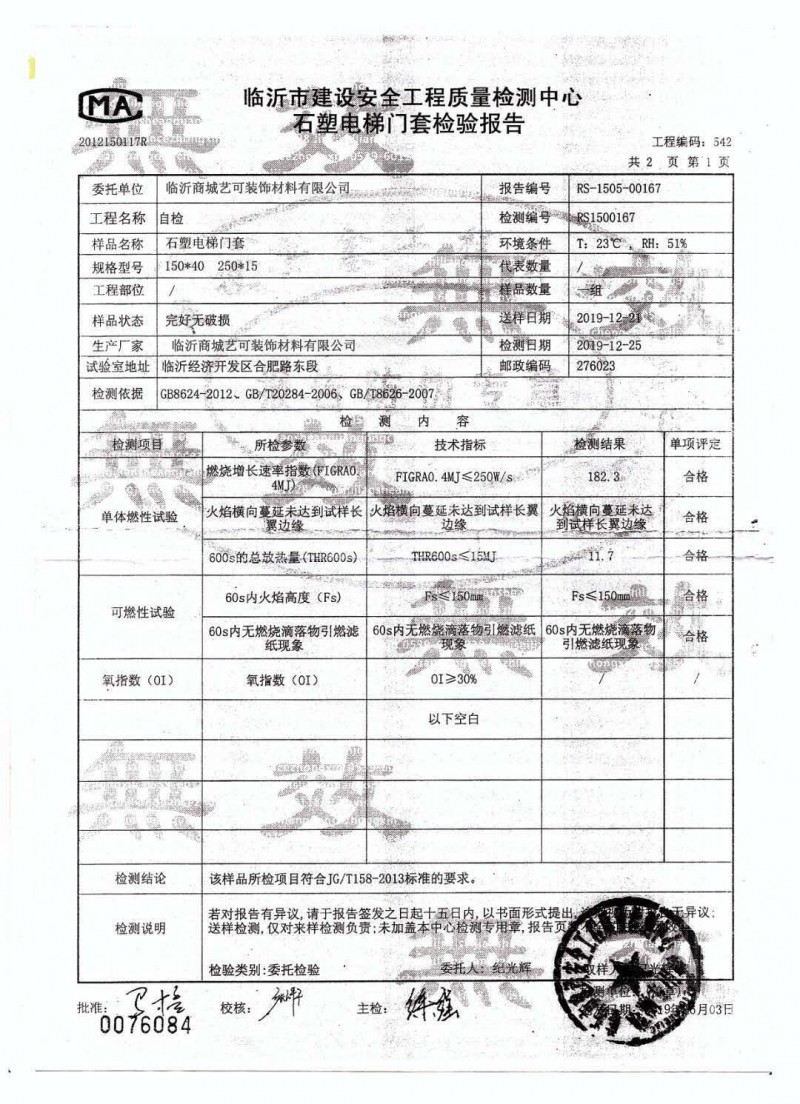 MA
2012150117R
临沂市建设安全工程质量检测中心
石塑电梯门套检验报告
工程编码：542
共 2 页 第 1 页
委托单位 临沂商城艺可装饰材料有限公司 报告编号 RS-1505-00167
工程名称 自检 检测编号 RS1500167
样品名称 石塑电梯门套 环境条件 T：23℃，RH：51%
规格型号 150*40 250*15 代表数量 /
工程部位 / 样品数量 一组
样品状态 完好无破损 送样日期 2019-12-21
生产厂家 临沂商城艺可装饰材料有限公司 检测日期 2019-12-25
试验室地址 临沂经济开发区合肥路东段 邮政编码 276023
检测依据 GB8624-2012、GB/T20284-2006、GB/T8626-2007
检 测 内 容
检测项目 所检参数 技术指标 检测结果 单项评定
单体燃性试验
燃烧增长速率指数(FIGRA0.
4MJ)
FIGRA0.4MJ≤250W/s 182.3 合格
火焰横向蔓延未达到试样长
翼边缘
火焰横向蔓延未达到试样长翼
边缘
火焰横向蔓延未达
到试样长翼边缘
合格
600s的总放热量(THR600s) THR600s≤15MJ 11.7 合格
可燃性试验
60s内火焰高度（Fs) Fs≤150mm Fs≤150mm 合格
60s内无燃烧滴落物引燃滤
纸现象
60s内无燃烧滴落物引燃滤纸
现象
60s内无燃烧滴落物
引燃滤纸现象
合格
氧指数（OI） 氧指数（OI） OI≥30% / /
以下空白
检测结论 该样品所检项目符合JG/T158-2013标准的要求。
检测说明
若对报告有异议,请于报告签发之日起十五日内,以书面形式提出,
无异议;
送样检测,仅对来样检测负责;未加盖本中心检测专用章,报告页
检验类别:委托检验 委托人：纪光辉
月03日
批准： 校核： 主检：
0076084
無效
無效
無效
無效
無效
無